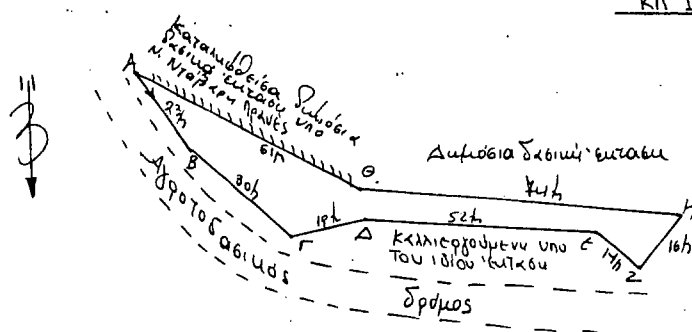 Καταληφθείσα δημόσια
δασική έκταση υπο
Ν. Νταβαρη πρανές
Α
22μ
Β
30μ
61μ
Θ.
Δημόσια δασική έκταση
Η
Γ
19μ
Δ
52μ
Ε
11μ
Ζ
16μ
Καλλιεργούμενη υπο
του ιδίου έκταση
Αγροτοδασικός
δρόμος